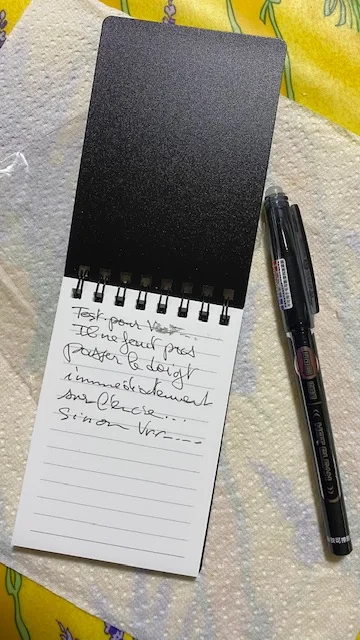 Test pour
Il ne faut pas
passer le doigt
immédiatement
sur l'encre...
Sinon Vrr....